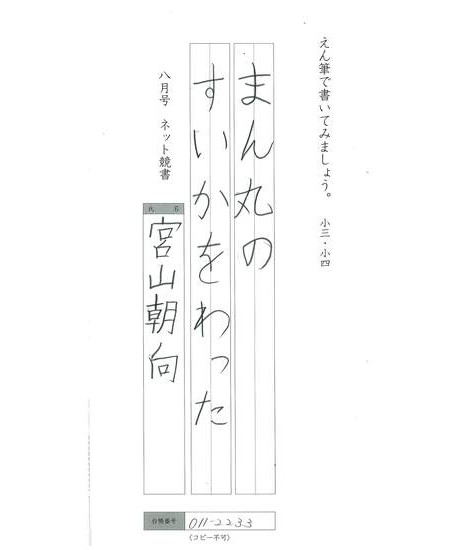 えん筆で書いてみましょう。 小三・小四
まん丸の
すいかをわった
八月号 ネット競書
氏名
宮山朝向
合格番号 011-2233
(コピー不可)